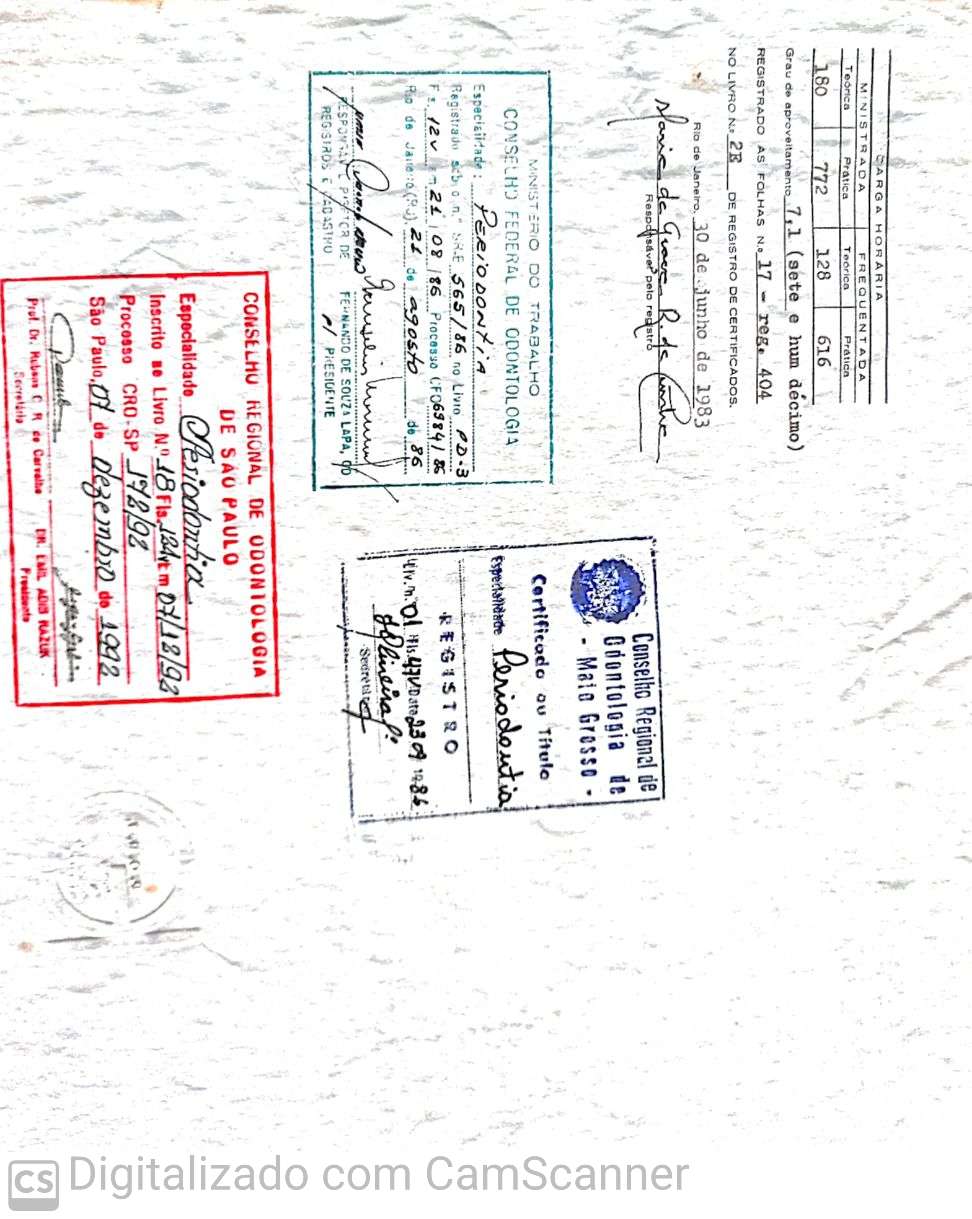 CARGA HORÁRIA
MINISTRADA FREQUENTADA
Teórica Prática Teórica Prática
180 772 128 616
Grau de aproveitamento 7,1 (sete e hum décimo)
REGISTRADO AS FOLHAS N.o 17 - reg. 404
NO LIVRO N.o 2E DE REGISTRO DE CERTIFICADOS.
Rio de Janeiro, 30 de junho de 1983
Maria da R. de
Responsável pelo registro
MINISTÉRIO DO TRABALHO
CONSELHO FEDERAL DE ODONTOLOGIA
Especialidade: PERIODONTIA
Registrado sob o n.º 565/86 no Livro PD-3
Fs. 12v em 21/08/86 Processo CFO 6984/86
Rio de Janeiro (RJ) 21 de agosto de 86
RESPONSÁVEL P/ SETOR DE FERNANDO DE SOUZA LAPA, CD
REGISTROS E CADASTRO P/ PRESIDENTE
Conselho Regional de
Odontologia de
- Mato Grosso -
Certificado ou Título
Especialidade Periodontia
REGISTRO
Liv. n.º 01 Fls. 47v Data 23 09 1986
Secretário
CONSELHO REGIONAL DE ODONTOLOGIA
DE SÃO PAULO
Especialidade Periodontia
Inscrito no Livro Nº 18 Fls. em 07/12/92
Processo CRO-SP 172/92
São Paulo, 07 de dezembro de 1992
Prof. Dr. Rubens C. R. de Carvalho DR. EMIL ADIB RAZUK
Secretário Presidente
CS Digitalizado com CamScanner